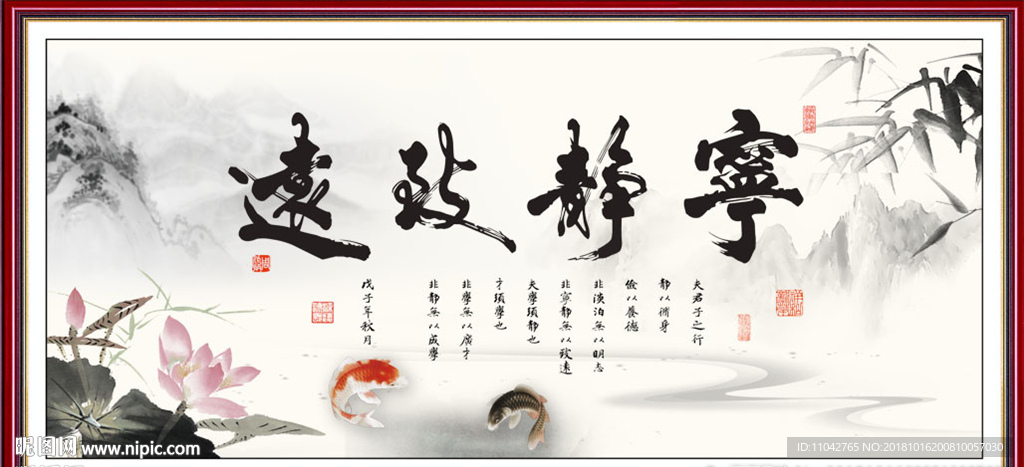 寧靜致遠
夫君子之行
靜以脩身
儉以養德
非淡泊無以明志
非寧靜無以致遠
夫學須靜也
才須學也
非學無以廣才
非靜無以成學
戊子年秋月
昵图网 www.nipic.com
ID:11042765 NO:20181016200810057030